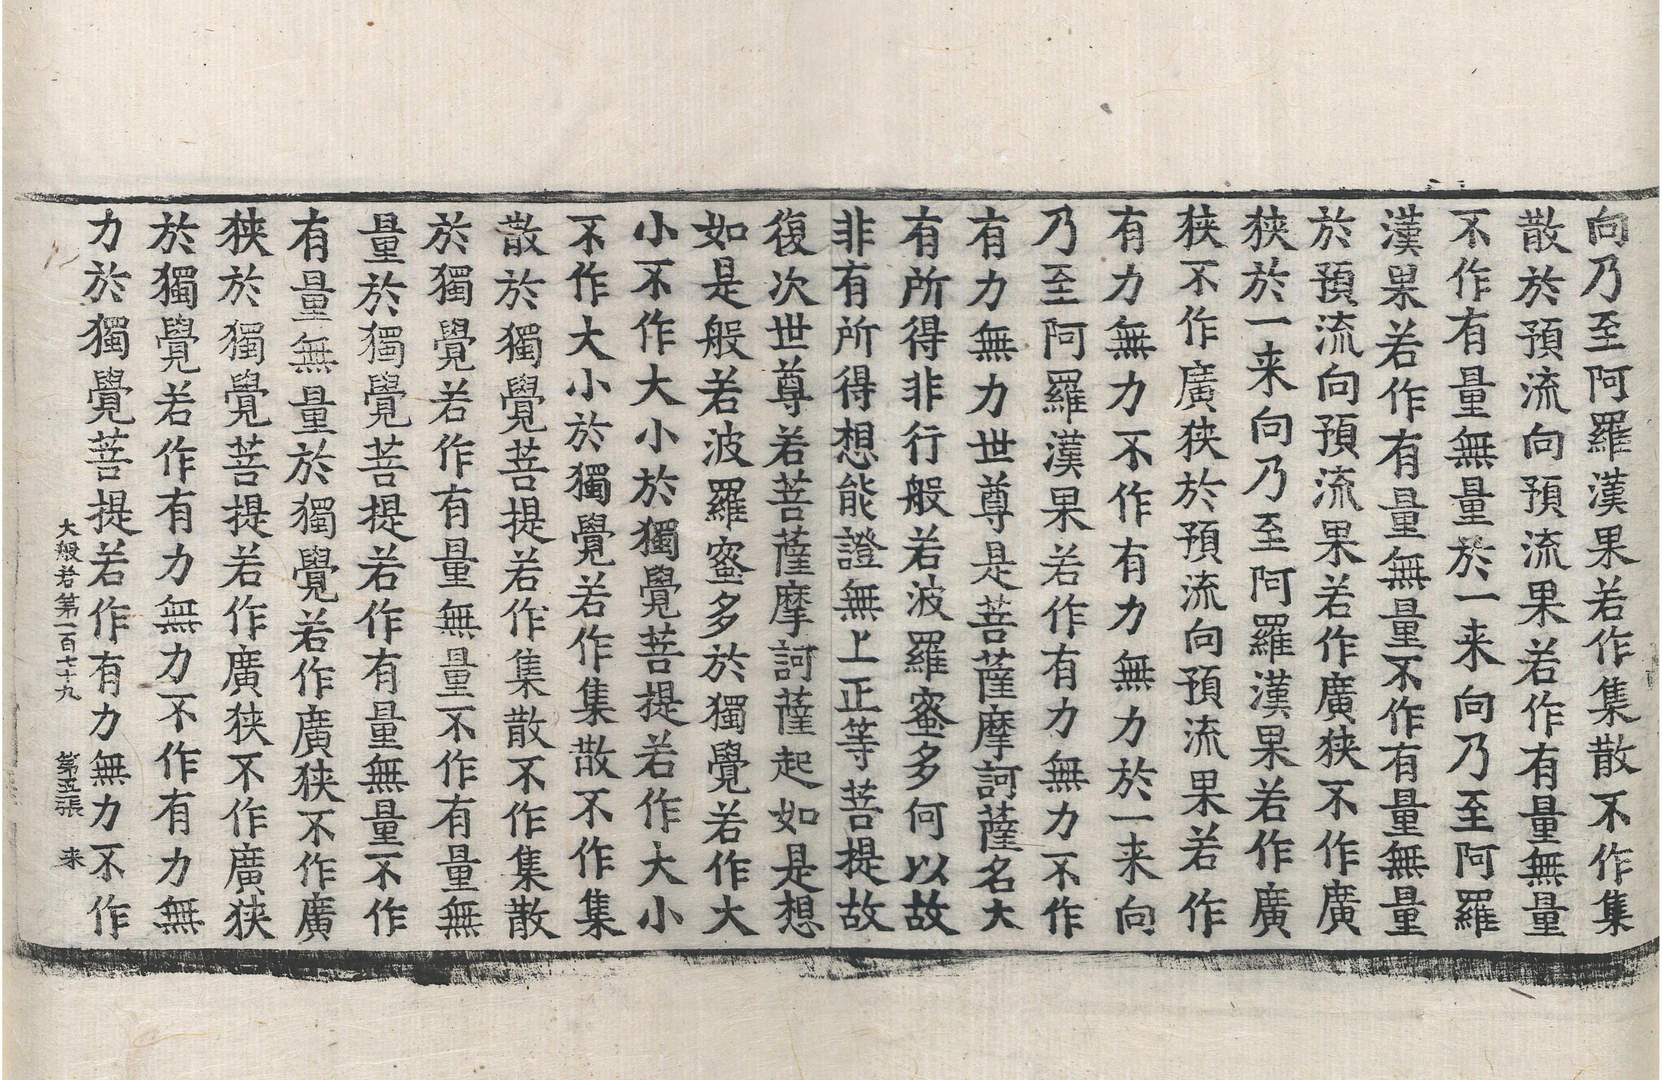 向乃至阿羅漢果若作集散不作集
散於預流向預流果若作有量無量
不作有量無量於一来向乃至阿羅
漢果若作有量無量不作有量無量
於預流向預流果若作廣狹不作廣
狹於一来向乃至阿羅漢果若作廣
狹不作廣狹於預流向預流果若作
有力無力不作有力無力於一来向
乃至阿羅漢果若作有力無力不作
有力無力世尊是菩薩摩訶薩名大
有所得非行般若波羅蜜多何以故
非有所得想能證無上正等菩提故
復次世尊若菩薩摩訶薩起如是想
如是般若波羅蜜多於獨覺若作大
小不作大小於獨覺菩提若作大小
不作大小於獨覺若作集散不作集
散於獨覺菩提若作集散不作集散
於獨覺若作有量無量不作有量無
量於獨覺菩提若作有量無量不作
有量無量於獨覺若作廣狹不作廣
狹於獨覺菩提若作廣狹不作廣狹
於獨覺若作有力無力不作有力無
力於獨覺菩提若作有力無力不作
大般若第一百七十九 第五張 来